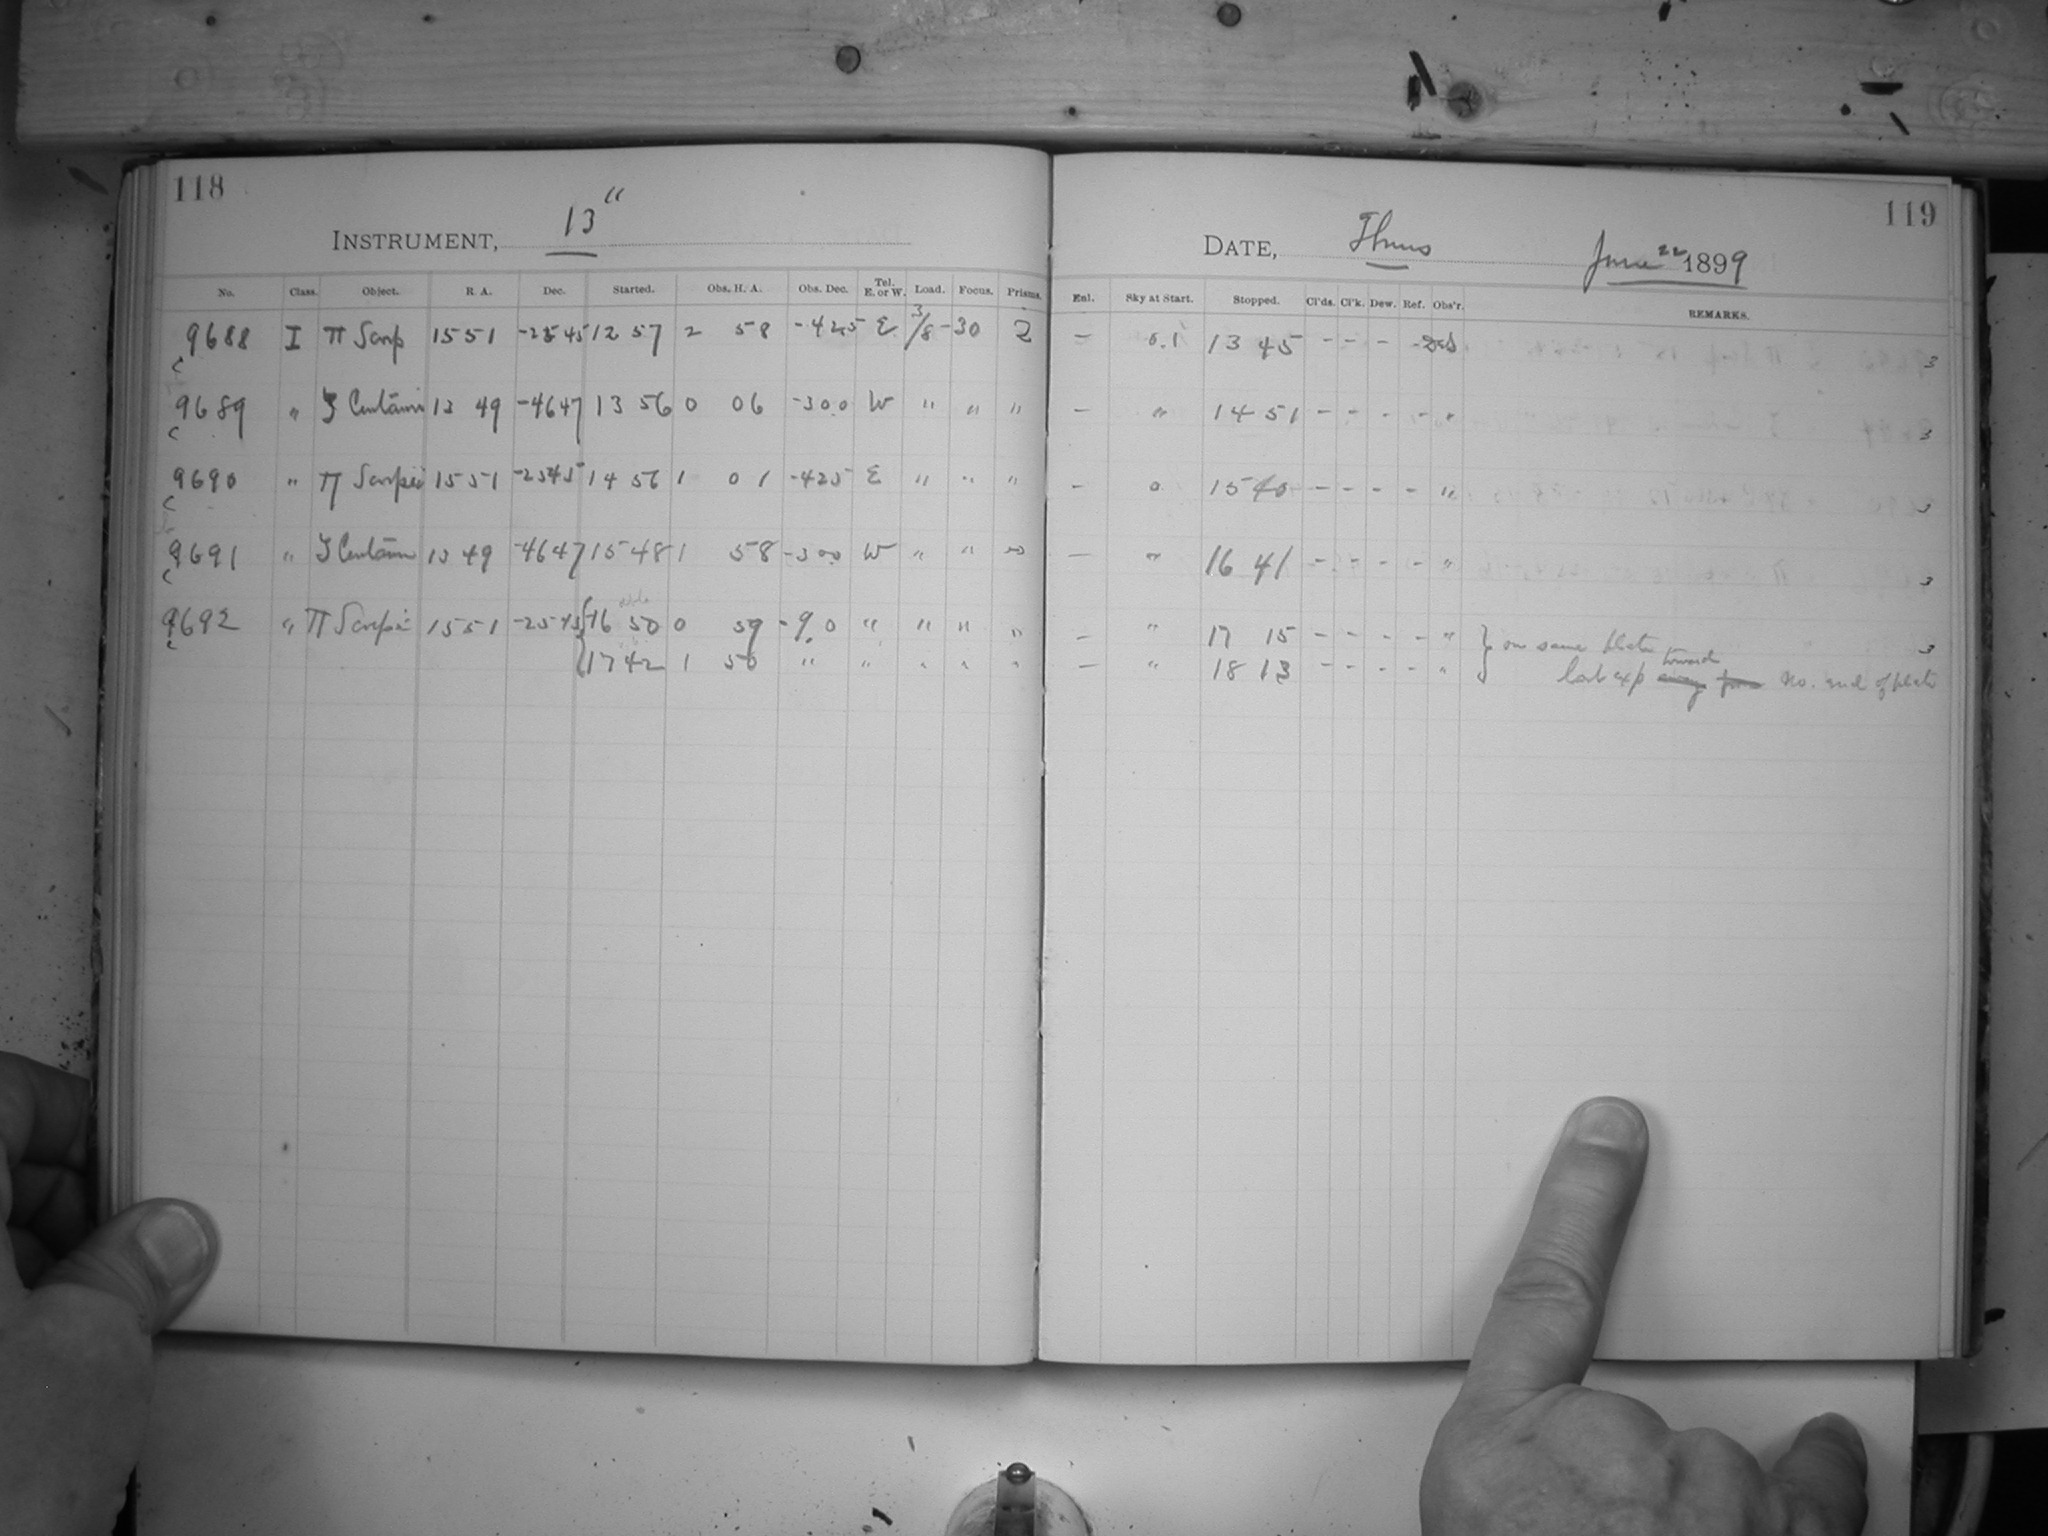 118
INSTRUMENT, 13"
No. Class. Object. R. A. Dec. Started. Obs. H. A. Obs. Dec. Tel. E. or W. Load. Focus. Prisms.
9688 I π Scorp 15 51 -25 45 12 57 2 58 -42.5 E 3/8 -30 2
9689 " ζ Centauri 13 49 -46 47 13 56 0 06 -30.0 W " " "
9690 " π Scorpii 15 51 -25 45 14 56 1 01 -42.5 E " " "
9691 " ζ Centauri 13 49 -46 47 15 48 1 58 -30.0 W " " "
9692 " π Scorpii 15 51 -25 45 { 16 50 0 59 -9.0 " " " "
17 42 1 50 " " " " "
119
DATE, Thurs June 22 1899
Enl. Sky at Start. Stopped. Cl'ds. Cl'k. Dew. Ref. Obs'r. REMARKS.
— 0.1 13 45 - - - - 3
— " 14 51 - - - - " 3
- 0 15 40 - - - - " 3
— " 16 41 - - - - " 3
- " 17 15 - - - - " } on same plate 3
— " 18 13 - - - - " last exp away from toward no. end of plate